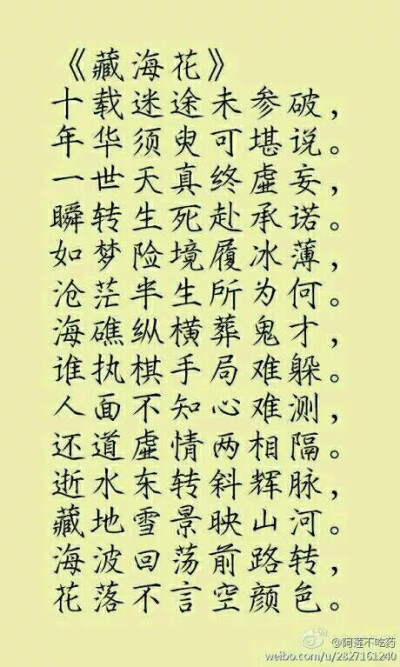 《藏海花》
十载迷途未参破，
年华须臾可堪说。
一世天真终虚妄，
瞬转生死赴承诺。
如梦险境履冰薄，
沧茫半生所为何。
海礁纵横葬鬼才，
谁执棋手局难躲。
人面不知心难测，
还道虚情两相隔。
逝水东转斜辉脉，
藏地雪景映山河。
海波回荡前路转，
花落不言空颜色。
@阿莲不吃药
weibo.com/u/2827161240